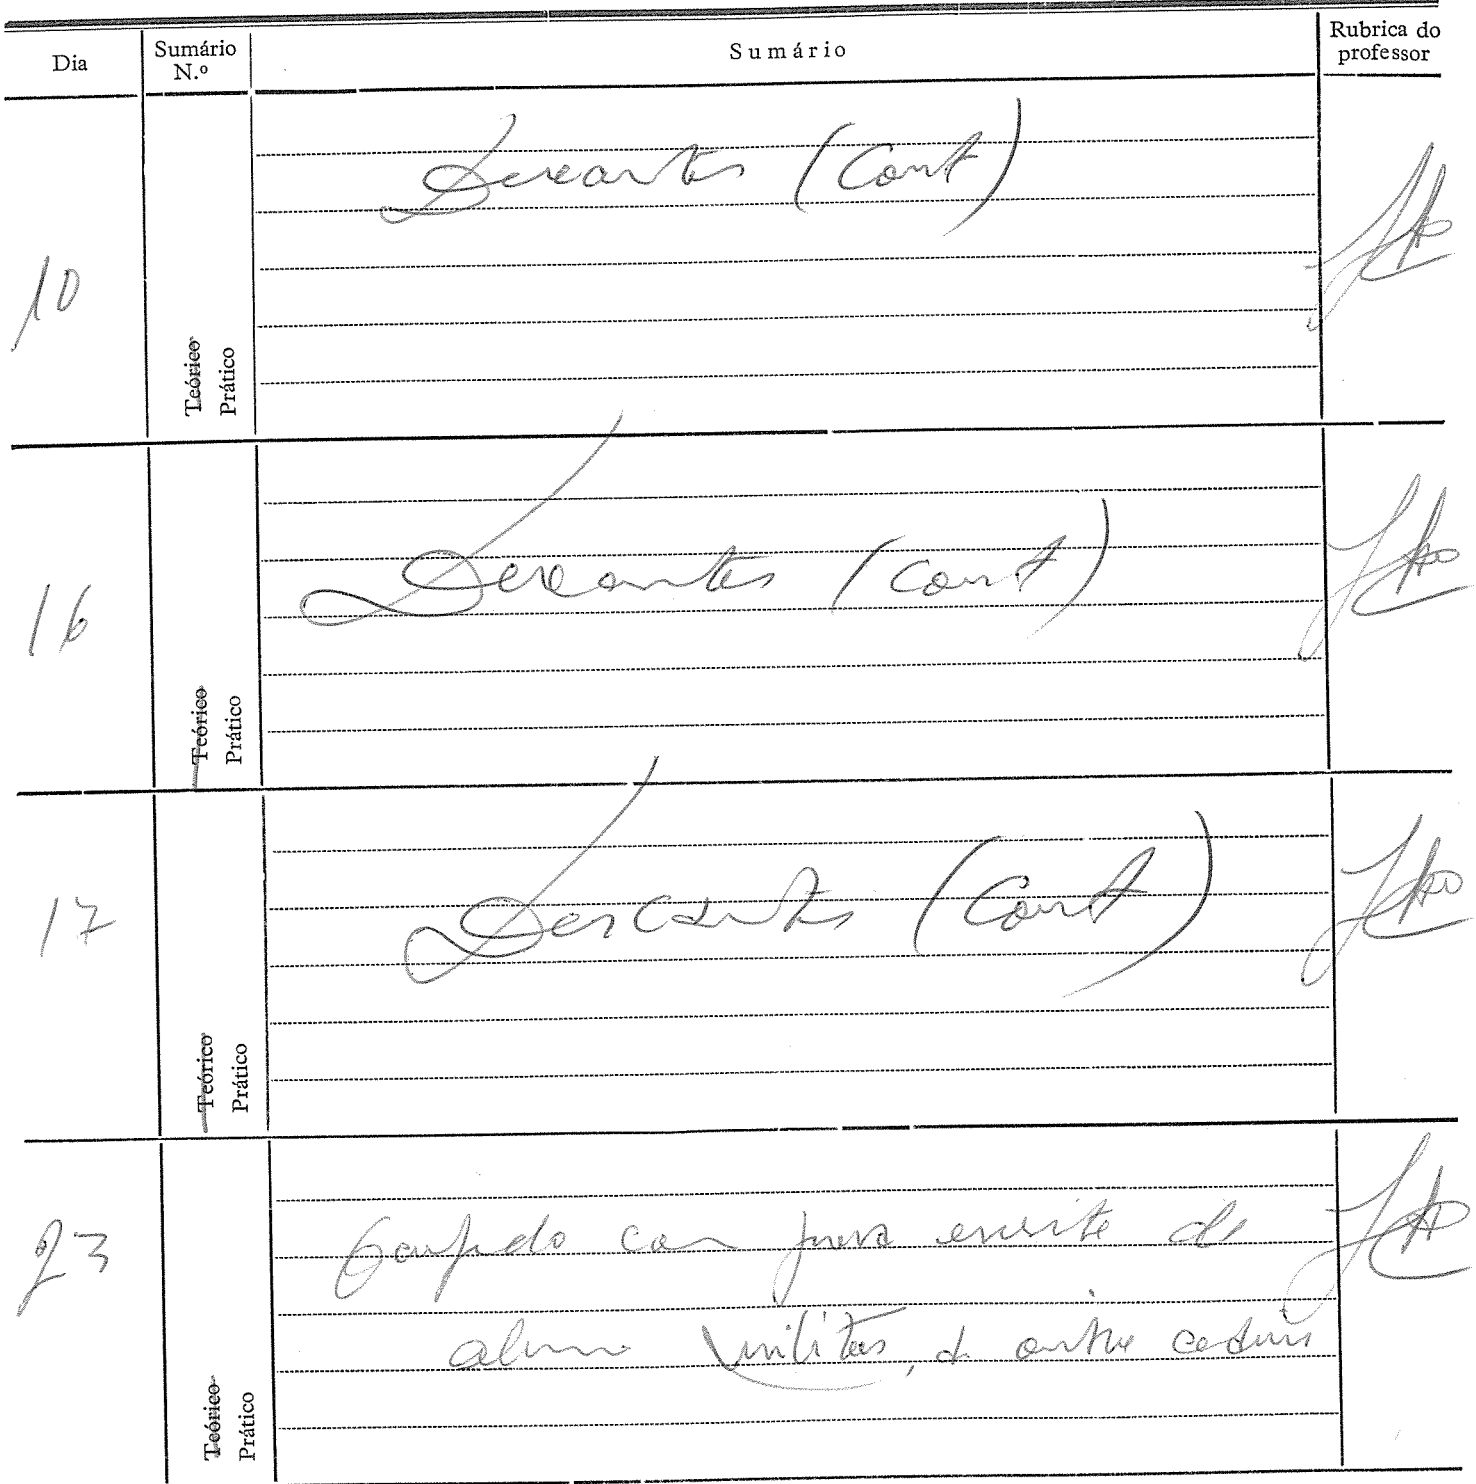 Dia Sumário N.º Sumário Rubrica do professor
10 Teórico Prático Descartes (Cont)
16 Teórico Prático Descartes (Cont)
17 Teórico Prático Descartes (Cont)
23 Teórico Prático com prova escrita de
aluno militar, de outra